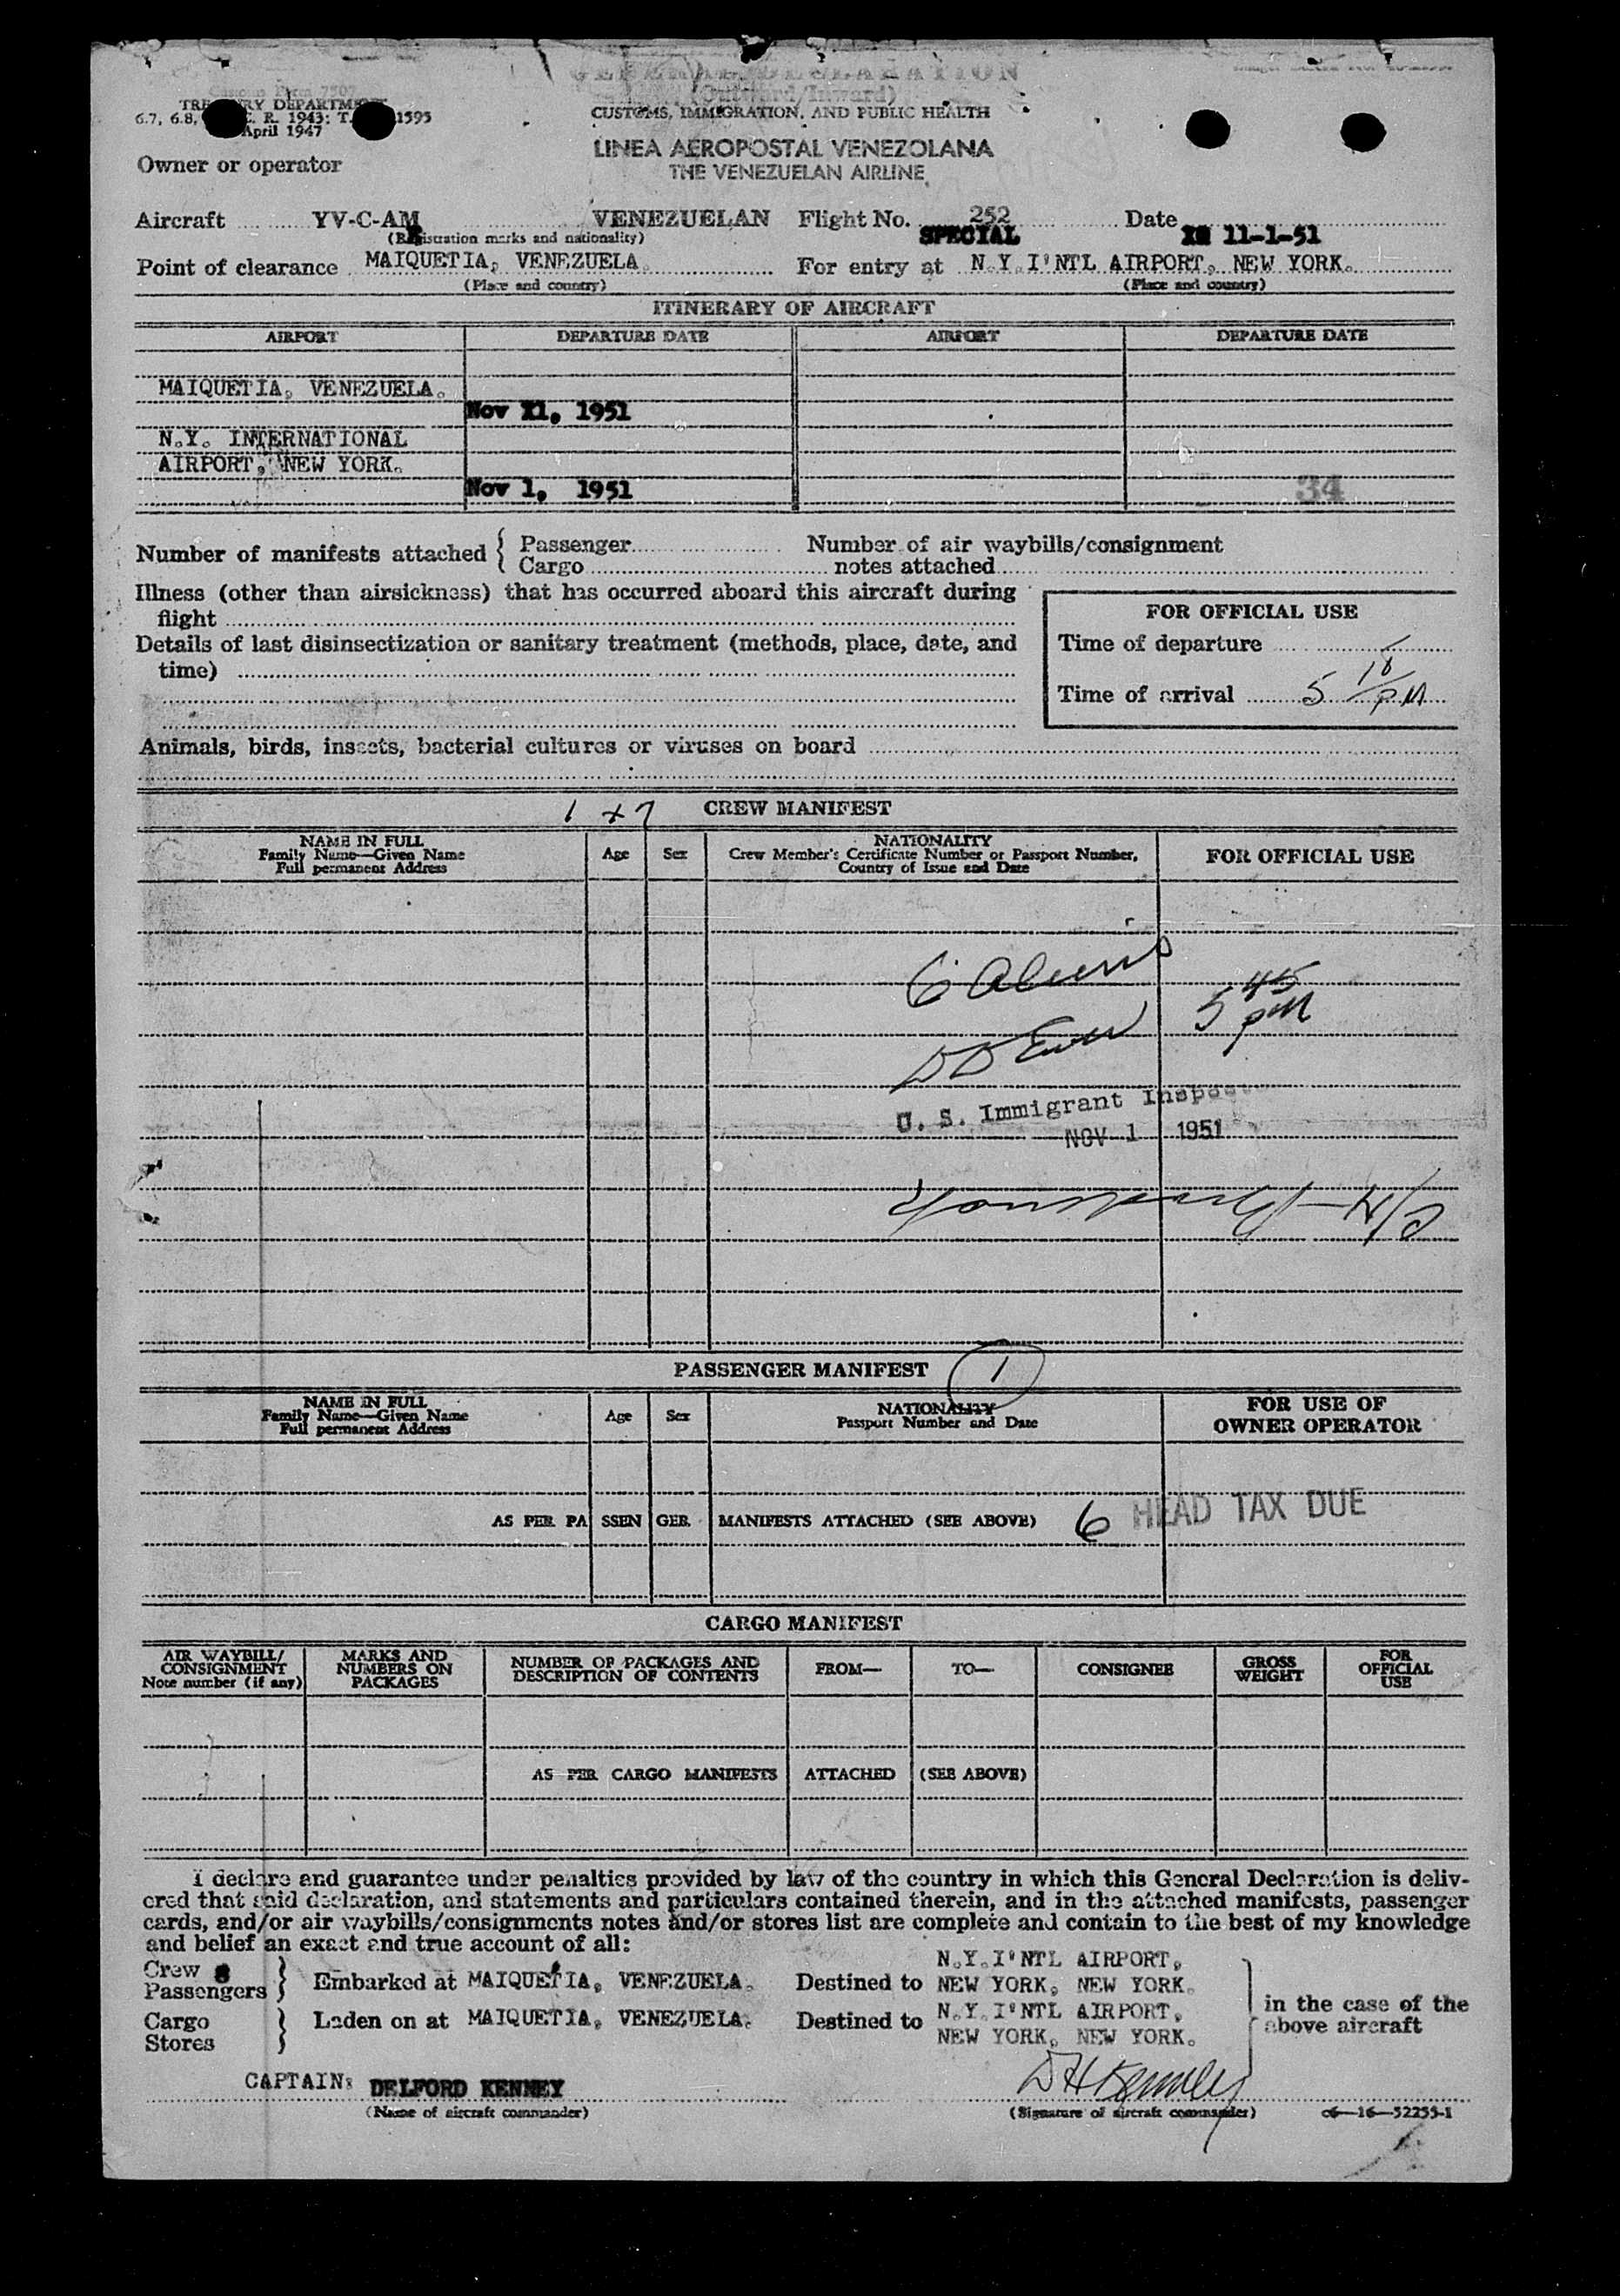 GENERAL DECLARATION
(Outward/Inward)
Customs Form 7507
TREASURY DEPARTMENT
CUSTOMS, IMMIGRATION, AND PUBLIC HEALTH
6.7, 6.8, C. R. 1943; T. 1595
April 1947
LINEA AEROPOSTAL VENEZOLANA
THE VENEZUELAN AIRLINE
Owner or operator
Aircraft YV-C-AM VENEZUELAN Flight No. 252 SPECIAL Date 11-1-51
(Registration marks and nationality)
Point of clearance MAIQUETIA, VENEZUELA. For entry at N.Y.I'NTL AIRPORT, NEW YORK.
(Place and country) (Place and country)
ITINERARY OF AIRCRAFT
AIRPORT DEPARTURE DATE AIRPORT DEPARTURE DATE
MAIQUETIA, VENEZUELA.
Nov 1, 1951
N.Y. INTERNATIONAL
AIRPORT, NEW YORK.
Nov 1, 1951 34
Number of manifests attached { Passenger Number of air waybills/consignment
Cargo notes attached
Illness (other than airsickness) that has occurred aboard this aircraft during
flight
Details of last disinsectization or sanitary treatment (methods, place, date, and
time)
FOR OFFICIAL USE
Time of departure
Time of arrival 5 10 PM
Animals, birds, insects, bacterial cultures or viruses on board
1 + 7 CREW MANIFEST
NAME IN FULL Age Sex NATIONALITY FOR OFFICIAL USE
Family Name—Given Name Crew Member's Certificate Number or Passport Number,
Full permanent Address Country of Issue and Date
6 Aliens
5 45 PM
U. S. Immigrant Inspector
NOV 1 1951
PASSENGER MANIFEST 1
NAME IN FULL Age Sex NATIONALITY FOR USE OF
Family Name—Given Name Passport Number and Date OWNER OPERATOR
Full permanent Address
AS PER PASSENGER MANIFESTS ATTACHED (SEE ABOVE) 6 HEAD TAX DUE
CARGO MANIFEST
AIR WAYBILL/ MARKS AND NUMBER OF PACKAGES AND FROM— TO— CONSIGNEE GROSS FOR
CONSIGNMENT NUMBERS ON DESCRIPTION OF CONTENTS WEIGHT OFFICIAL
Note number (if any) PACKAGES USE
AS PER CARGO MANIFESTS ATTACHED (SEE ABOVE)
I declare and guarantee under penalties provided by law of the country in which this General Declaration is deliv-
ered that said declaration, and statements and particulars contained therein, and in the attached manifests, passenger
cards, and/or air waybills/consignments notes and/or stores list are complete and contain to the best of my knowledge
and belief an exact and true account of all:
N.Y.I'NTL AIRPORT,
Crew 8
Passengers } Embarked at MAIQUETIA, VENEZUELA. Destined to NEW YORK, NEW YORK.
N.Y.I'NTL AIRPORT,
Cargo
Stores } Laden on at MAIQUETIA, VENEZUELA. Destined to NEW YORK, NEW YORK.
in the case of the
above aircraft
CAPTAIN: DELFORD KENNEY D H Kenney
(Name of aircraft commander) (Signature of aircraft commander) c6—16—52255-1